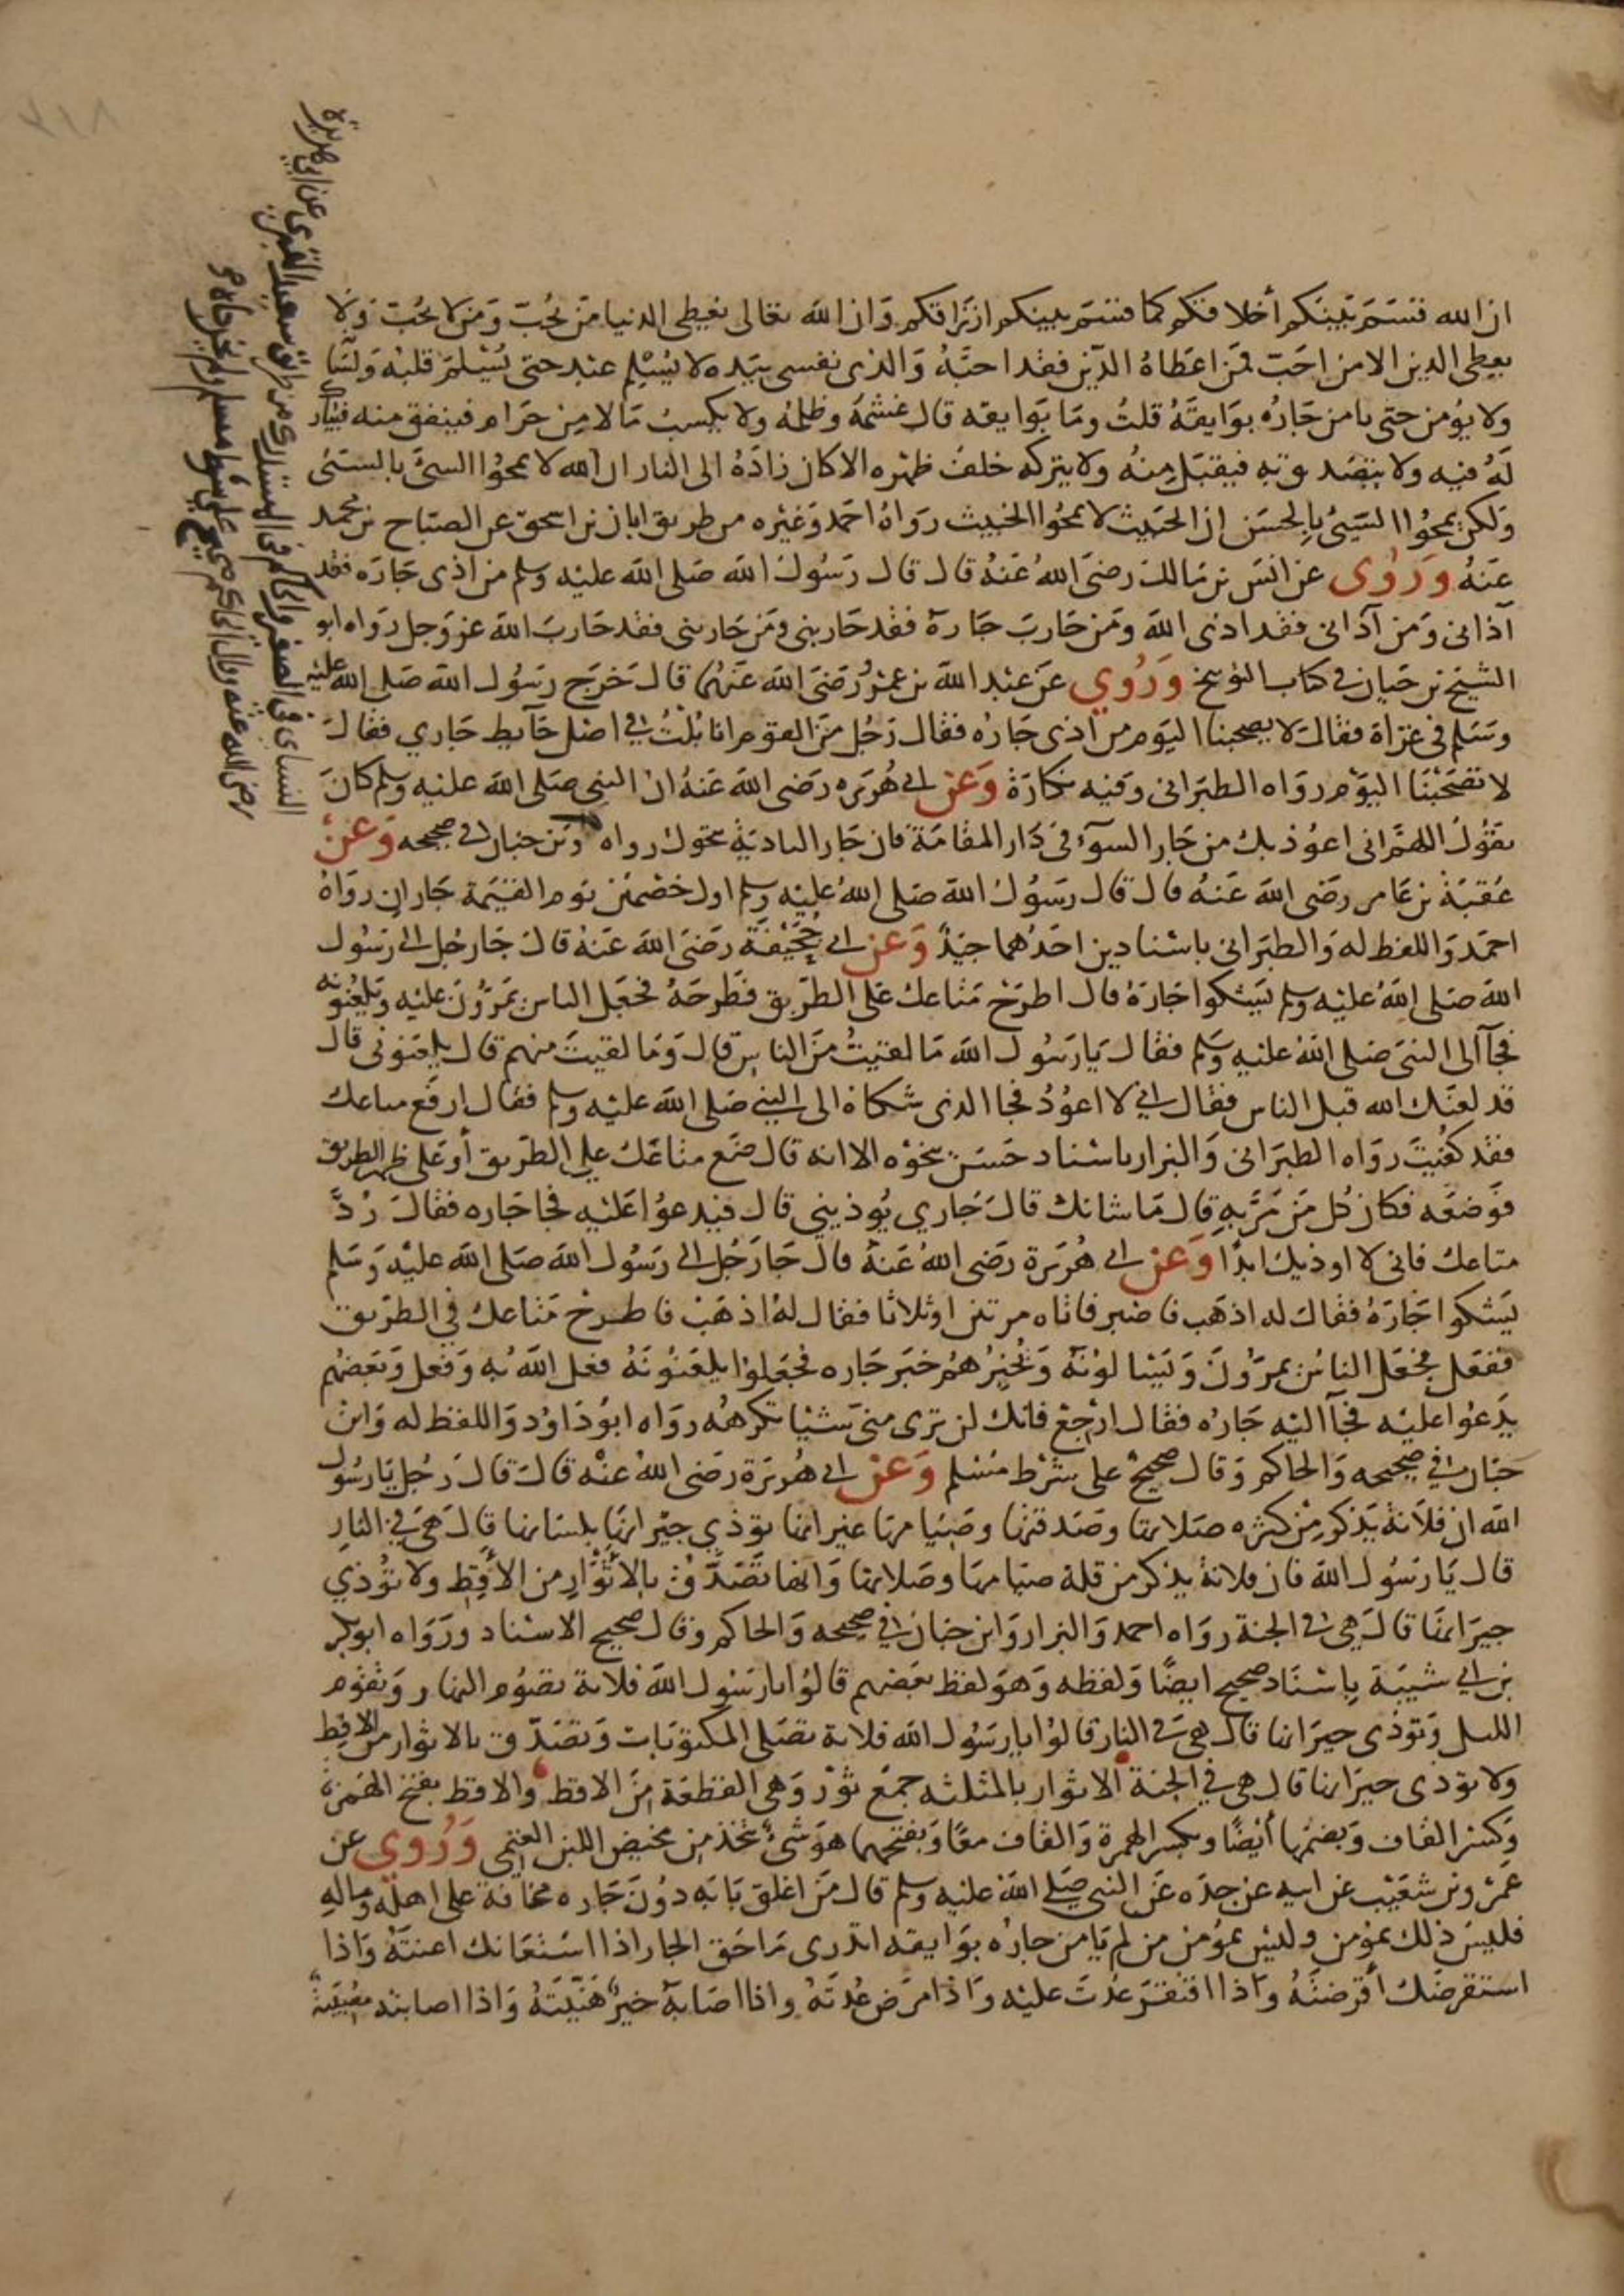 ان الله قسم بينكم أخلاقكم كما قسم بينكم ارزاقكم وان الله تعالى يعطي الدنيا من يحب ومن لا يحب ولا
يعطي الدين الا من احب فمن اعطاه الدين فقد احبه والذي نفسي بيده لا يسلم عبد حتى يسلم قلبه ولسانه
ولا يؤمن حتى يامن جاره بوايقه قلت وما بوايقه قال غشمه وظلمه ولا يكسب مالا من حرام فينفق منه فيبارك
له فيه ولا يتصدق به فيقبل منه ولا يتركه خلف ظهره الا كان زاده الى النار ان الله لا يمحوا السيئ بالسيئ
ولكن يمحوا السيئ بالحسن ان الخبيث لا يمحوا الخبيث رواه احمد وغيره من طريق ابان بن اسحق عن الصباح بن محمد
عنه وروي عن انس بن مالك رضي الله عنه قال قال رسول الله صلى الله عليه وسلم من اذى جاره فقد
آذاني ومن آذاني فقد اذى الله ومن حارب جاره فقد حاربني ومن حاربني فقد حارب الله عز وجل رواه ابو
الشيخ بن حيان في كتاب التوبيخ وروي عن عبد الله بن عمرو رضي الله عنهما قال خرج رسول الله صلى الله عليه
وسلم في غزاة فقال لا يصحبنا اليوم من آذى جاره فقال رجل من القوم انا بلت في اصل حايط جاري فقال
لا تصحبنا اليوم رواه الطبراني وفيه نكارة وعن ابي هريره رضي الله عنه ان النبي صلى الله عليه وسلم كان
يقول اللهم اني اعوذ بك من جار السوء في دار المقامة فان جار البادية يتحول رواه وبن حبان في صحيحه وعن
عقبة بن عامر رضي الله عنه قال قال رسول الله صلى الله عليه وسلم اول خصمين يوم القيمة جاران رواه
احمد واللفظ له والطبراني باسنادين احدهما جيد وعن ابي جحيفة رضي الله عنه قال جا رجل الى رسول
الله صلى الله عليه وسلم يشكوا جاره قال اطرح متاعك على الطريق فطرحه فجعل الناس يمرون عليه ويلعنونه
فجآ الى النبي صلى الله عليه وسلم فقال يا رسول الله ما لقيت من الناس قال وما لقيت منهم قال يلعنوني قال
قد لعنك الله قبل الناس فقال اني لا اعود فجا الذي شكاه الى النبي صلى الله عليه وسلم فقال ارفع متاعك
فقد كفيت رواه الطبراني والبزار باسناد حسن بنحوه الا انه قال ضع متاعك على الطريق أو على ظهر الطريق
فوضعه فكان كل من مر به قال ما شانك قال جاري يؤذيني قال فيدعوا عليه فجا جاره فقال رد
متاعك فاني لا اوذيك ابدا وعن ابي هريرة رضي الله عنه قال جا رجل الى رسول الله صلى الله عليه وسلم
يشكوا جاره فقال له اذهب فاصبر فاتاه مرتين او ثلاثا فقال له اذهب فاطرح متاعك في الطريق
ففعل فجعل الناس يمرون ويسالونه ويخبرهم خبر جاره فجعلوا يلعنونه فعل الله به وفعل وبعضهم
يدعوا عليه فجآ اليه جاره فقال ارجع فانك لن ترى مني شيئا تكرهه رواه ابو داود واللفظ له وابن
حبان في صحيحه والحاكم وقال صحيح على شرط مسلم وعن ابي هريرة رضي الله عنه قال قال رجل يا رسول
الله ان فلانة يذكر من كثره صلاتها وصدقتها وصيامها غير انها تؤذي جيرانها بلسانها قال هي في النار
قال يا رسول الله فان فلانة يذكر من قلة صيامها وصلاتها وانها تصدق بالاثوار من الأقط ولا تؤذي
جيرانها قال هي في الجنة رواه احمد والبزار وابن حبان في صحيحه والحاكم وقال صحيح الاسناد ورواه ابو بكر
بن ابي شيبة باسناد صحيح ايضا ولفظه وهو لفظ بعضهم قالوا يا رسول الله فلانة تصوم النهار وتقوم
الليل وتوذي جيرانها قال هي في النار قالوا يا رسول الله فلانة تصلي المكتوبات وتصدق بالاثوار من الاقط
ولا توذي جيرانها قال هي في الجنة الاثوار بالمثلثه جمع ثور وهي القطعة من الاقط والاقط بفتح الهمزة
وكسر القاف وبضمها أيضا وبكسر الهمزة والقاف معا وبفتحهما هو شيء يتخذ من مخيض اللبن الغنمي وروي عن
عمرو بن شعيب عن ابيه عن جده عن النبي صلى الله عليه وسلم قال من اغلق بابه دون جاره مخافة على اهله وماله
فليس ذلك بمؤمن وليس بمؤمن من لم يامن جاره بوايقه اتدري ما حق الجار اذا استعانك اعنته واذا
استقرضك أقرضته واذا افتقر عدت عليه واذا مرض عدته واذا اصابه خير هنيته واذا اصابته مصيبة
عن ابي هريرة